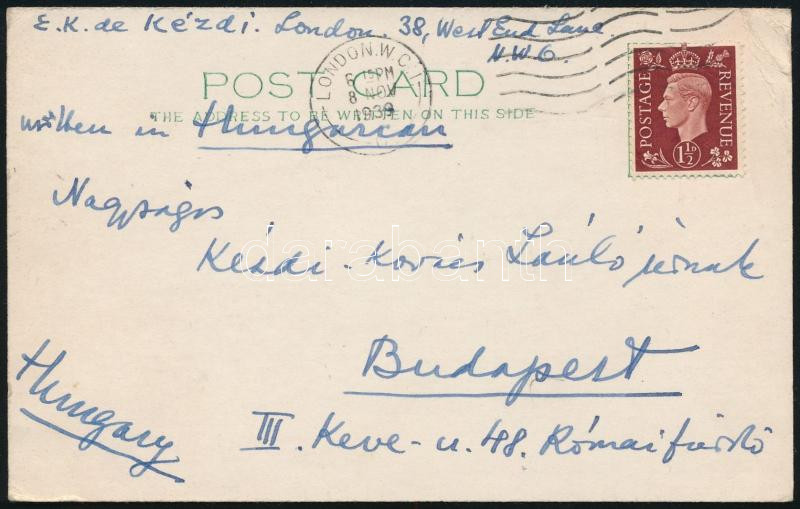 E.K. de Kézdi. London. 38, West End Lane.
N.W.6.
LONDON. W.C.1
6 15 PM
8 NOV
1939
POST CARD
THE ADDRESS TO BE WRITTEN ON THIS SIDE
POSTAGE REVENUE
1½D
written in Hungarian
Nagyságos
Kézdi-Kovács László úrnak
darabanth
Budapest
Hungary
III. Keve-u. 48. Római fürdő